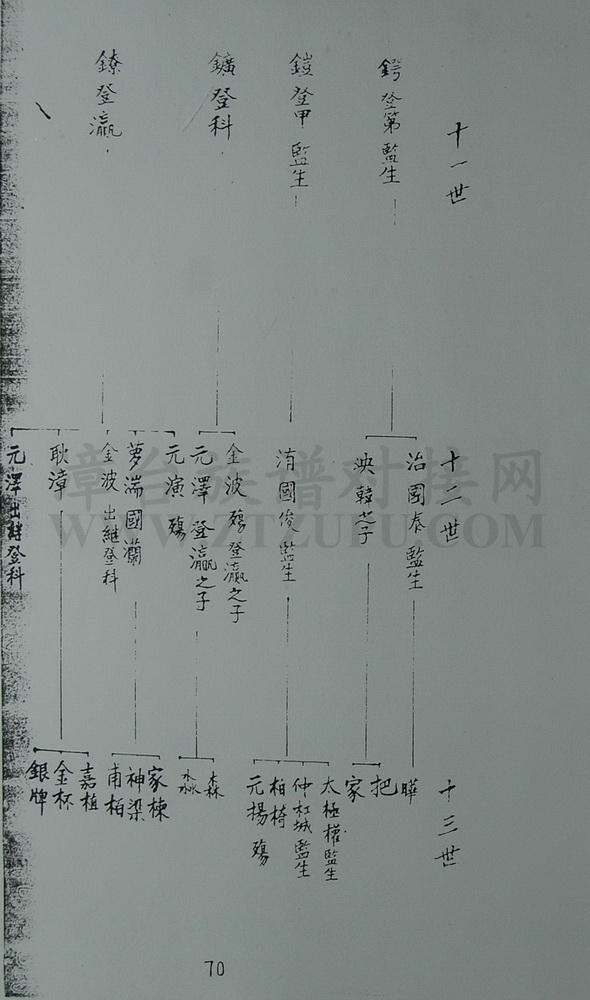 十一世
鍔登第監生
鎧登甲監生
鑛登科
鐐登瀛
十二世
治國泰監生
泱韓之子
淯國俊監生
金波殤登瀛之子
元澤登瀛之子
元演殤
萝湍國瀾
金波出継登科
耿漳
元澤出継登科
十三世
曄
把
家
太極權監生
仲杠城監生
柏椅
元楊殤
森
淼
家棟
神梁
甫柏
嘉植
金杯
銀牌
70
章台族谱对接网
WWW.ZTZUPU.COM